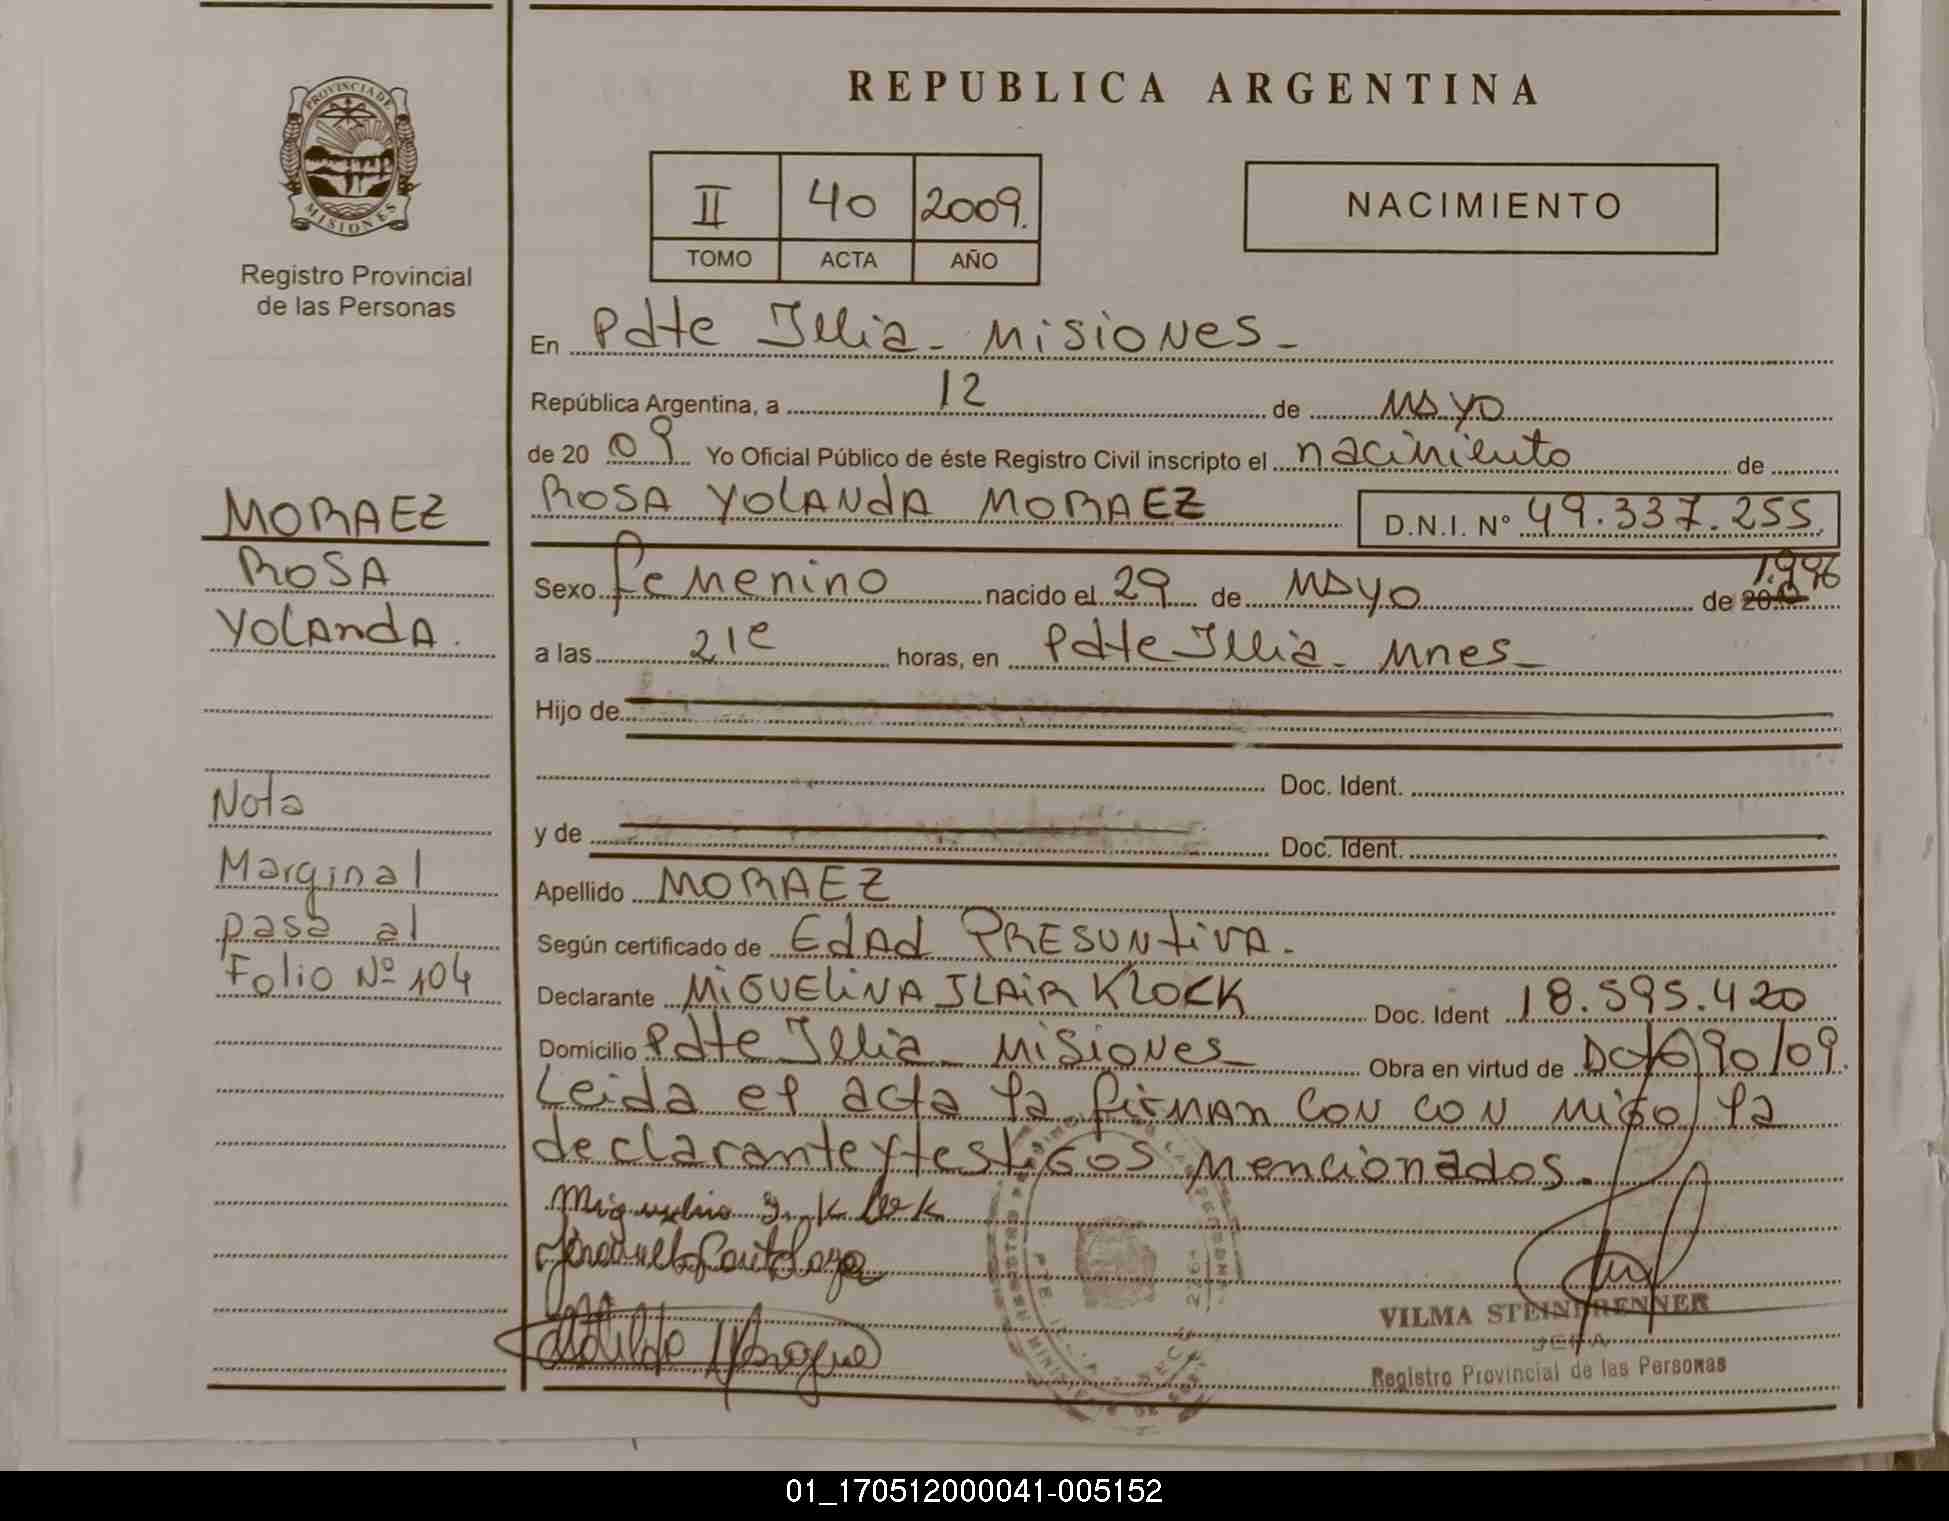 REPUBLICA ARGENTINA
PROVINCIA DE
MISIONES
Registro Provincial
de las Personas
II 40 2009.
TOMO ACTA AÑO
NACIMIENTO
En Pdte Illia - Misiones -
República Argentina, a 12 de Mayo
de 20 09 Yo Oficial Público de éste Registro Civil inscripto el nacimiento de
ROSA YOLANDA MORAEZ D.N.I. Nº 49.337.255
Sexo femenino nacido el 29 de Mayo de 20 1.996
a las 21 horas, en Pdte Illia - Mnes -
Hijo de
Doc. Ident.
y de Doc. Ident.
Apellido MORAEZ
Según certificado de EDAD PRESUNTIVA -
Declarante MIGUELINA ILAIR KLOCK Doc. Ident 18.595.420
Domicilio Pdte Illia - Misiones - Obra en virtud de 90/09.
Leida el acta la firman con con migo la
declarante y testigos mencionados.
VILMA STEINBRENNER
JEFA
Registro Provincial de las Personas
MORAEZ
ROSA
YOLANDA.
Nota
Marginal
pasa al
Folio Nº 104
01_170512000041-005152